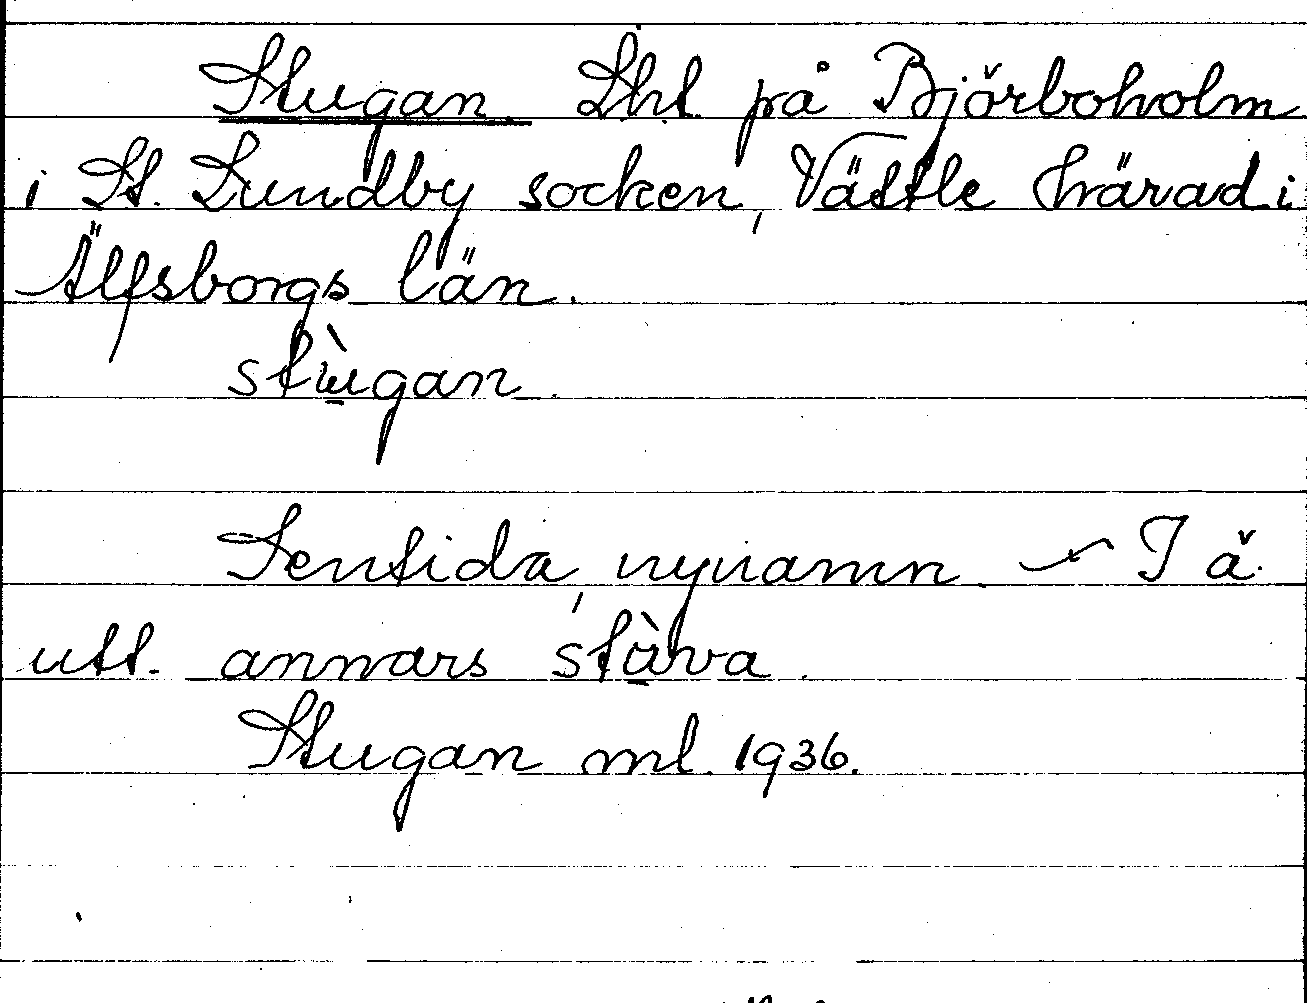 Stugan. Lht. på Björboholm
i St. Lundby socken, Vättle härad i
Älfsborgs län.
stùgan.
Sentida, nynamn. – I ä.
utt. annars stùva.
Stugan ml. 1936.